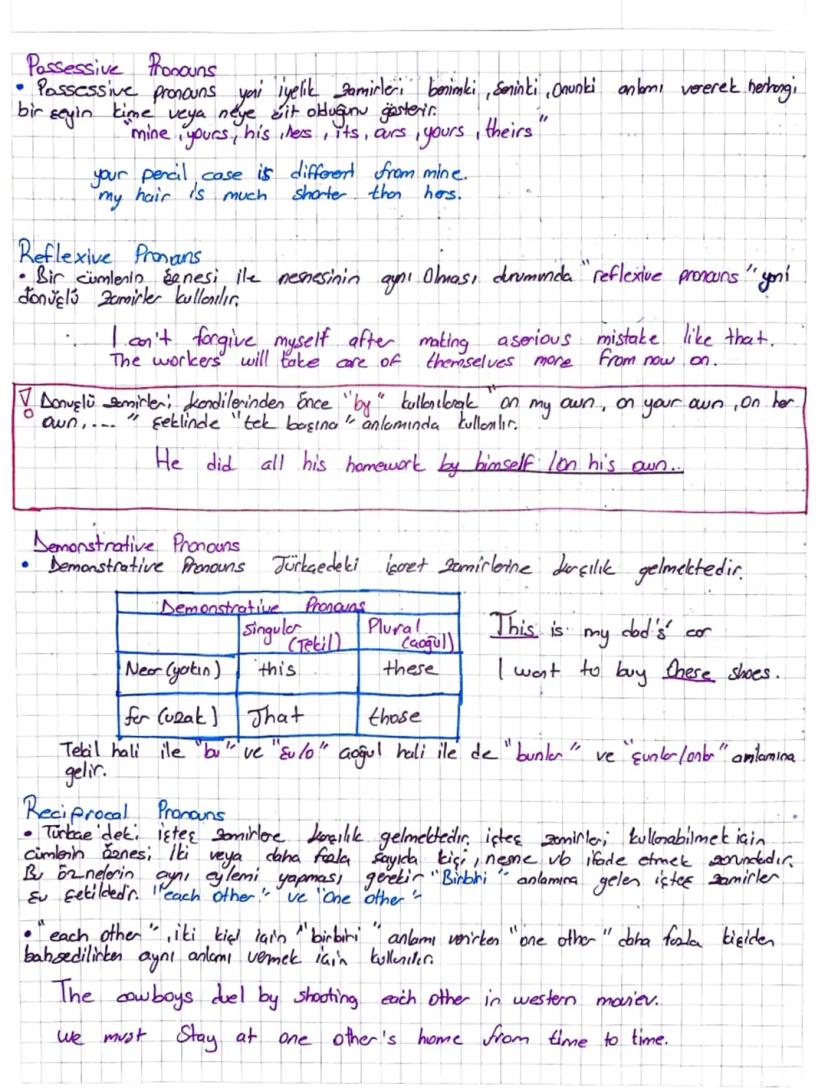 Possessive Pronouns
• Possessive pronouns yani iyelik zamirleri benimki, seninki, onunki anlamı vererek herhangi
bir şeyin kime veya neye ait olduğunu gösterir.
"mine, yours, his, hers, its, ours, yours, theirs"
your pencil case is different from mine.
my hair is much shorter than hers.
Reflexive Pronouns
• Bir cümlenin öznesi ile nesnesinin aynı olması durumunda "reflexive pronouns" yani
dönüşlü zamirler kullanılır.
I can't forgive myself after making a serious mistake like that.
The workers will take care of themselves more from now on.
! Dönüşlü zamirleri kendilerinden önce "by" kullanılarak "on my own, on your own, on her
own, ..." şeklinde "tek başına" anlamında kullanılır.
He did all his homework by himself / on his own..
Demonstrative Pronouns
• Demonstrative Pronouns Türkçedeki işaret zamirlerine karşılık gelmektedir.
Demonstrative Pronouns
Singular (Tekil) Plural (çoğul)
Near (yakın) this these
far (uzak) That those
This is my dad's' car
I want to buy these shoes.
Tekil hali ile "bu" ve "şu/o" çoğul hali ile de "bunlar" ve "şunlar/onlar" anlamına
gelir.
Reciprocal Pronouns
• Türkçe'deki işteş zamirlere karşılık gelmektedir, işteş zamirleri kullanabilmek için
cümlenin öznesi iki veya daha fazla sayıda kişi, nesne vb ifade etmek zorundadır.
Bu öznelerin aynı eylemi yapması gerekir "Birbiri" anlamına gelen işteş zamirler
şu şekildedir. "each other" ve "one other"
• "each other", iki kişi için "birbiri" anlamı verirken "one other" daha fazla kişiden
bahsedilirken aynı anlamı vermek için kullanılır.
The cowboys duel by shooting each other in western moviev.
we must stay at one other's home from time to time.